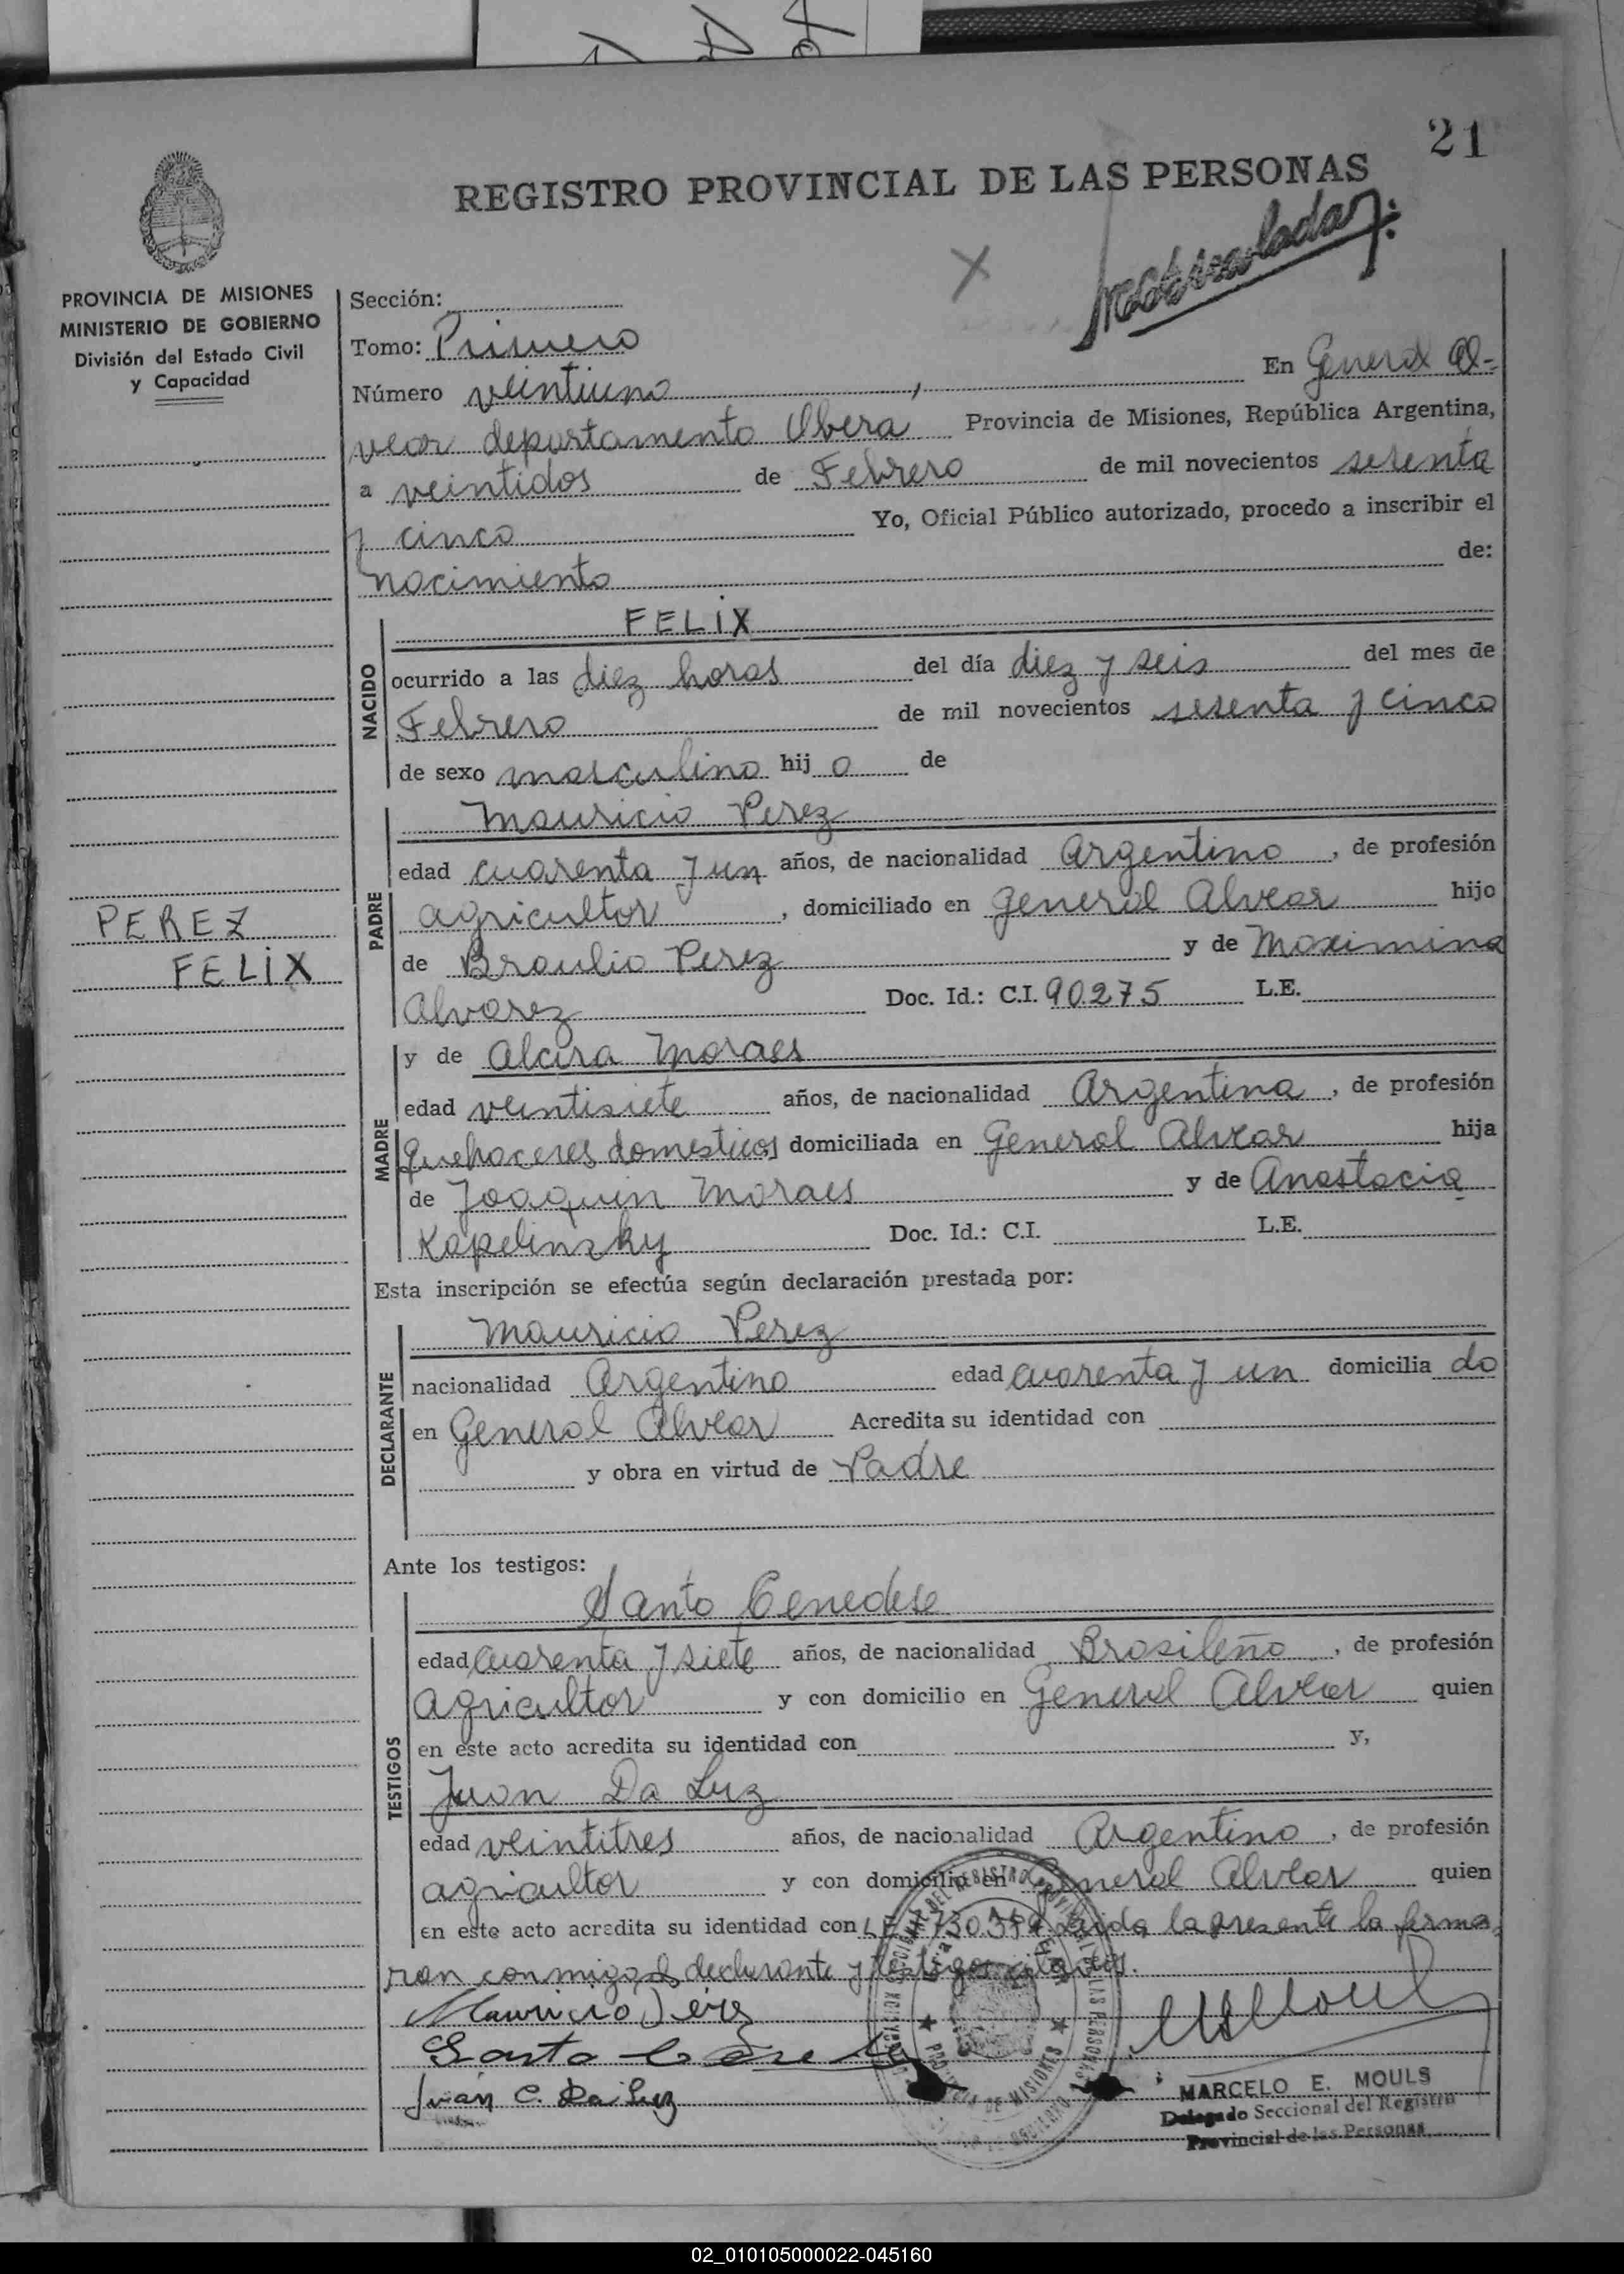 21
REGISTRO PROVINCIAL DE LAS PERSONAS
Matriculado
X
PROVINCIA DE MISIONES
MINISTERIO DE GOBIERNO
División del Estado Civil
y Capacidad
Sección:
Tomo: Primero
Número veintiuno, En General Al-
vear departamento Obera Provincia de Misiones, República Argentina,
a veintidos de Febrero de mil novecientos sesenta
y cinco Yo, Oficial Público autorizado, procedo a inscribir el
nacimiento de:
NACIDO
FELIX
ocurrido a las diez horas del día diez y seis del mes de
Febrero de mil novecientos sesenta y cinco
de sexo masculino hij o de
PADRE
Mauricio Perez
edad cuarenta y un años, de nacionalidad Argentino, de profesión
agricultor, domiciliado en General Alvear hijo
PEREZ
FELIX
de Braulio Perez y de Maximina
Alvarez Doc. Id.: C.I. 90.275 L.E.
MADRE
y de Alcira Moraes
edad veintisiete años, de nacionalidad Argentina, de profesión
quehaceres domesticos domiciliada en General Alvear hija
de Joaquin Moraes y de Anastacia
Kapelinzky Doc. Id.: C.I. L.E.
Esta inscripción se efectúa según declaración prestada por:
DECLARANTE
Mauricio Perez
nacionalidad Argentino edad cuarenta y un domicilia do
en General Alvear Acredita su identidad con
y obra en virtud de Padre
Ante los testigos:
TESTIGOS
Santo Cenedese
edad cuarenta y siete años, de nacionalidad Brasileño, de profesión
agricultor y con domicilio en General Alvear quien
en este acto acredita su identidad con y,
Juan Da Luz
edad veintitres años, de nacionalidad Argentino, de profesión
agricultor y con domicilio en General Alvear quien
en este acto acredita su identidad con L.E. leida la presente la firma
ron conmigo, el declarante y testigos citados.
Mauricio Pérez
Santo
Juán C. Da Luz
PROVINCIA DE MISIONES
MARCELO E. MOULS
Delegado Seccional del Registro
Provincial de las Personas
02_010105000022-045160